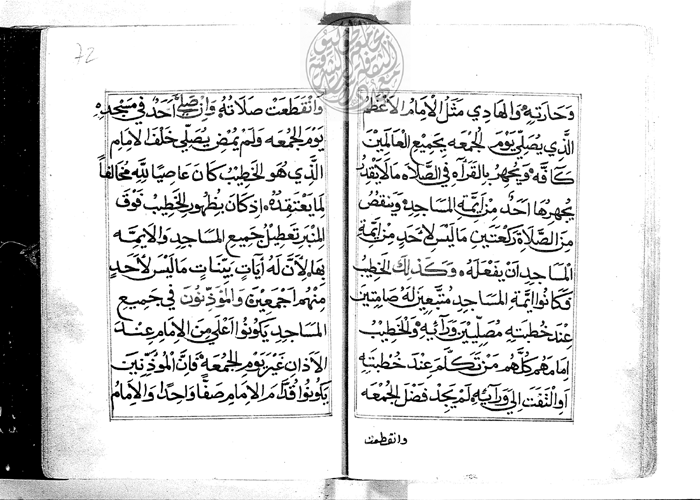 وَحَارَتِهِ وَالهَادِي مَثَلُ الاِمَامُ الاَعْظَمُ
الَّذِي يُصَلِّي يَوْمَ الْجُمْعَه بِجَمِيْعِ العَالَمِيْنَ
كَافَّه وَيُجْهِرُ بِالْقَرَآهِ فِي الصَّلَاه مَالَايَقْدِرُ
يُجْهِرُهَا اَحَدٌ مِنْ اَيِمَّةِ المَسَاجِدِ وَيَنْقُصُ
مِنَ الصَّلَاةِ رَكْعَتَيْنِ مَالَيْسَ لِاَحَدٍ مِنْ اَيِمَّةِ
الْمَسَاجِدِ اَنْ يَفْعَلَهُ وَكَذٰلِكَ الخَطِيْبُ
فَكَانُوا اَيِمَّةِ المَسَاجِدِ مُتَّبِعِيْنَ لَهُ صَامِتِيْنَ
عِنْدَ خُطْبَتِهِ مُصَلِّيْيْنَ وَرَآئِهِ وَالخَطِيْبُ
اِمَامَهُمْ كُلُّهُمْ مَنْ تَكَلَّمَ عِنْدَ خُطْبَتِهِ
اَوِ الْتَفَتَ اِلَى وَرَآئِهِ لَمْ يَجِدْ فَضْلَ الْجُمْعَه
وانقطعت
72
وَانْقَطَعَتْ صَلَاتُهُ وَاِنْ صَلَّى اَحَدٌ فِي مَسْجِدِهِ
يَوْمَ الجُمْعَه وَلَمْ يَمْضِ يُصَلِّي خَلْفَ الاِمَامِ
الَّذِي هُوَ الْخَطِيْبُ كَانَ عَاصِيًا لِلّٰهِ مُخَالِفاً
لِمَا يَعْتَقِدُهُ اِذ كَانَ بِظُهُورِ الخَطِيْبِ فَوْقَ
المِنْبَرِ تَعْطِيْلُ جَمِيْعِ المَسَاجِدِ وَالاَيِمَّه
بِهَا لِاَنَّ لَهُ آيَاتٍ بَيِّنَاتٍ مَالَيْسَ لِاَحَدٍ
مِنْهُم اَجْمَعِيْنَ وَالمُوَذِّنُونَ فِي جَمِيعِ
المَسَاجِدِ يَكُونُوا اَعْلَى مِنَ الاِمَامِ عِنْدَ
الاَذَانِ غَيْرَ يَوْمِ الجُمْعَه فَاِنَّ الْمُوَذِّنِيْنَ
يَكُونُوا قُدَّامَ الاِمَامِ صَفًّا وَاحِدًا وَالاِمَامُ